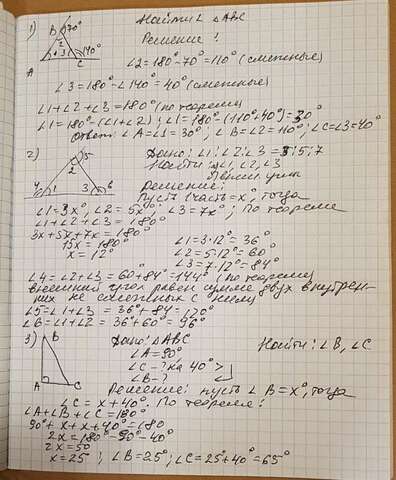 1) Найти ∠ ΔABC
B 70°
2
140°
1 3
A C
Решение:
∠2=180°-70°=110° (смежные)
∠3=180°-∠140°=40° (смежные)
∠1+∠2+∠3=180° (по теореме)
∠1=180°-(∠1+∠2); ∠1=180°-(110°+40°)=30°
Ответ: ∠A=∠1=30°; ∠B=∠2=110°; ∠C=∠3=40°
2) Дано: ∠1:∠2:∠3=3:5:7
5
2
4 1 3 6
Найти: ∠1, ∠2, ∠3
Решение:
Пусть 1 часть=x°, тогда
∠1=3x°, ∠2=5x°, ∠3=7x°; По теореме
∠1+∠2+∠3=180°
3x+5x+7x=180°
15x=180° ∠1=3·12°=36°
x=12° ∠2=5·12=60°
∠3=7·12°=84°
∠4=∠2+∠3=60+84°=144° (по теореме)
внешний угол равен сумме двух внутрен-
них не смежных с ним
∠5=∠1+∠3=36°+84=120°
∠6=∠1+∠2=36°+60°=96°
3) B Дано: ΔABC Найти: ∠B, ∠C
∠A=90°
∠C-? на 40°>
∠B-?
A C
Решение: пусть ∠B=x°, тогда
∠C=x+40°. По теореме:
∠A+∠B+∠C=180°
90°+x+x+40°=180
2x=180°-90°-40°
2x=50
x=25; ∠B=25°; ∠C=25+40°=65°